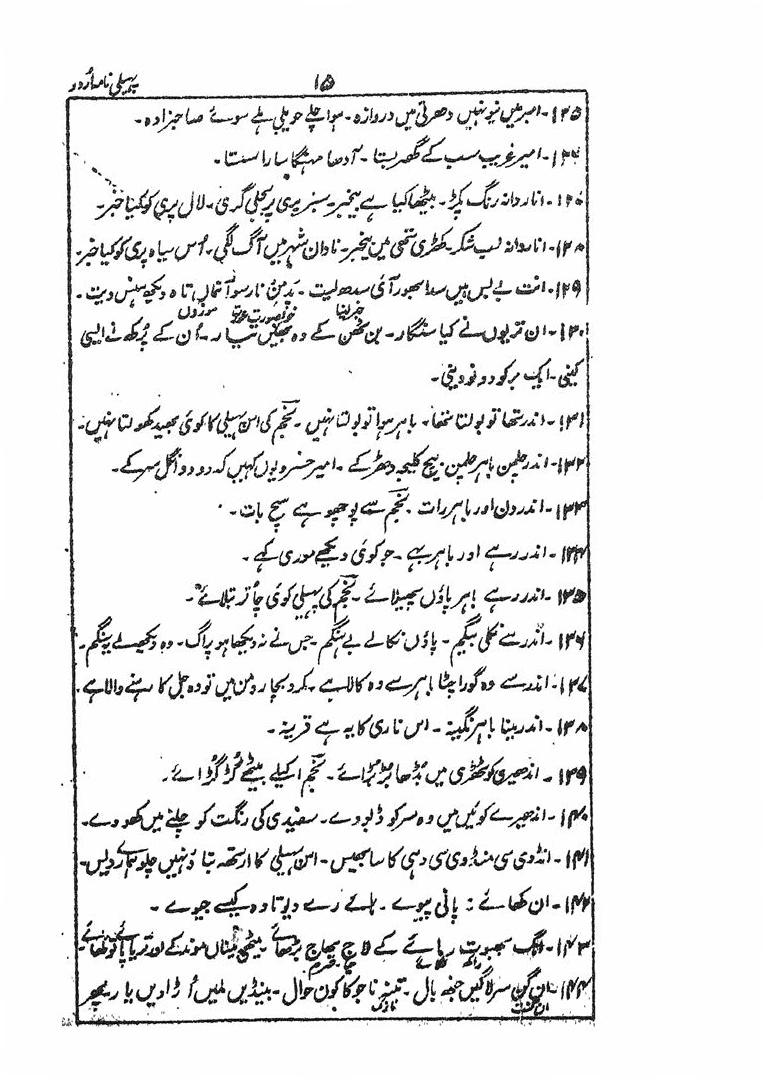 ۱۵
پہیلی نامہ اُردو
۱۲۵۔ امبر میں نیو نہیں دھرتی میں دروازہ۔ ہوا چلے حویلی ہلے سوئے صاحبزادہ۔
۱۲۶۔ امیر غریب سب کے گھر بستا۔ آدھا مہنگا سارا سستا۔
۱۲۷۔ انار دانہ رنگ پکڑ۔ بیٹھا کیا ہے بیخبر۔ سبز پری پر بجلی گری۔ لال پری کو کیا خبر۔
۱۲۸۔ انار دانہ لب شکر۔ کھڑی تھی میں بیخبر۔ نادان شہر میں آگ لگی۔ اُس سیاہ پری کو کیا خبر۔
۱۲۹۔ انت بے بس ہیں سدا بھور آئی سدھ لیت۔ پدمن نار سو آتماں تا ہ دیکھ ہنس دیت۔
۱۳۰۔ ان تریوں نے کیا سنگار۔ بن ٹھن کے وہ بھئیں تیار۔ اُن کے پُرکھ نے ایسی
خوبصورت عورت موزوں
کینی۔ ایک بر کو دو نو دینی۔
۱۳۱۔ اندر تھا تو بولتا تھا۔ باہر ہوا تو بولتا نہیں۔ نجم کی اس پہیلی کا کوئی بھید کھولتا نہیں۔
۱۳۲۔ اندر چلمن باہر چلمن بیچ کلیجہ دھڑکے۔ امیر خسرو یوں کہیں کہ دو دو انگل سرکے۔
۱۳۳۔ اندر دن اور باہر رات۔ نجم سے پوچھو ہے سچ بات۔
۱۳۴۔ اندر رہے اور باہر بہے۔ جو کوئی دیکھے موری کہے۔
۱۳۵۔ اندر رہے باہر پاؤں پھیلائے۔ نجم کی پہیلی کوئی چاتر بتلائے۔
۱۳۶۔ اندر سے نکلی بیگم۔ پاؤں نکالے بے ہنگم۔ جس نے نہ دیکھا ہو پراگ۔ وہ دیکھ لے پینگم۔
۱۳۷۔ اندر سے وہ گورا چٹا باہر سے وہ کالا ہے۔ کر و بچار من میں تو وہ جل کا رہنے والا ہے۔
۱۳۸۔ اندر بینا باہر نگینہ۔ اس ناری کا یہ ہے قرینہ۔
۱۳۹۔ اندھیری کوٹھڑی میں بُڈھا بڑبڑائے۔ نجم اکیلے بیٹھے گُڑگُڑائے۔
۱۴۰۔ اندھیرے کوئیں میں وہ سر کو ڈبو دے۔ سفیدی کی رنگت کو چلنے میں کھو دے۔
۱۴۱۔ انڈوی سی منڈوی سی دہی کا سا بھیس۔ اس پہیلی کا ارتھ بتاؤ نہیں چلو ہمارے دیس۔
۱۴۲۔ ان کھائے نہ پانی پیوے۔ ہائے رے دیوتا وہ کیسے جیوے۔
۱۴۳۔ انگ بھبوت رمائے کے لاج بھاج بڑھائے۔ بیٹھے نیناں موند کے
راکھ لگائے شرم
۱۴۴۔ ان گن سر لاگیں جبھ بال۔ تیہنہ ناجو کا کون حوال۔ بینڈیں لہیں اُڑا دیں یا
ان گنت نازک